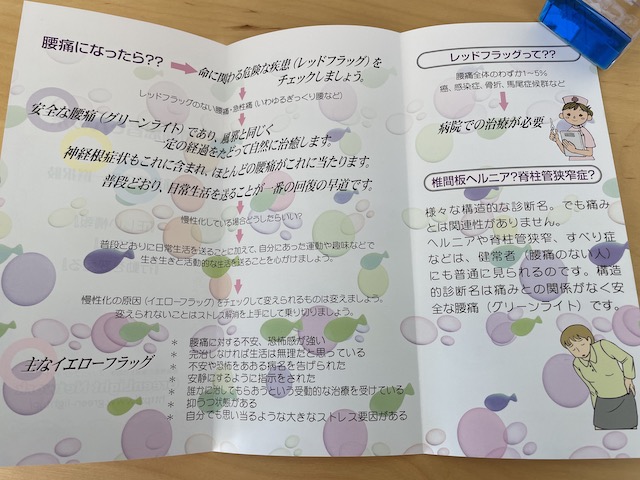 腰痛になったら??
命に関わる危険な疾患（レッドフラッグ）を
チェックしましょう。
レッドフラッグのない腰痛・急性痛（いわゆるぎっくり腰など）
安全な腰痛（グリーンライト）であり、風邪と同じく
一定の経過をたどって自然に治癒します。
神経根症状もこれに含まれ、ほとんどの腰痛がこれに当たります。
普段どおり、日常生活を送ることが一番の回復の早道です。
慢性化している場合どうしたらいい?
普段どおりに日常生活を送ることに加えて、自分にあった運動や趣味などで
生き生きと活動的な生活を送ることを心がけましょう。
慢性化の原因（イエローフラッグ）をチェックして変えられるものは変えましょう。
変えられないことはストレス解消を上手にして乗り切りましょう。
主なイエローフラッグ
＊ 腰痛に対する不安、恐怖感が強い
＊ 完治しなければ生活は無理だと思っている
＊ 不安や恐怖をあおる病名を告げられた
＊ 安静にするように指示をされた
＊ 誰かに治してもらおうという受動的な治療を受けている
＊ 抑うつ状態がある
＊ 自分でも思い当るような大きなストレス要因がある
レッドフラッグって??
腰痛全体のわずか1〜5%
癌、感染症、骨折、馬尾症候群など
病院での治療が必要
椎間板ヘルニア?脊柱管狭窄症?
様々な構造的な診断名。でも痛み
とは関連性がありません。
ヘルニアや脊柱管狭窄、すべり症
などは、健常者（腰痛のない人）
にも普通に見られるのです。構造
的診断名は痛みとの関係がなく安
全な腰痛（グリーンライト）です。